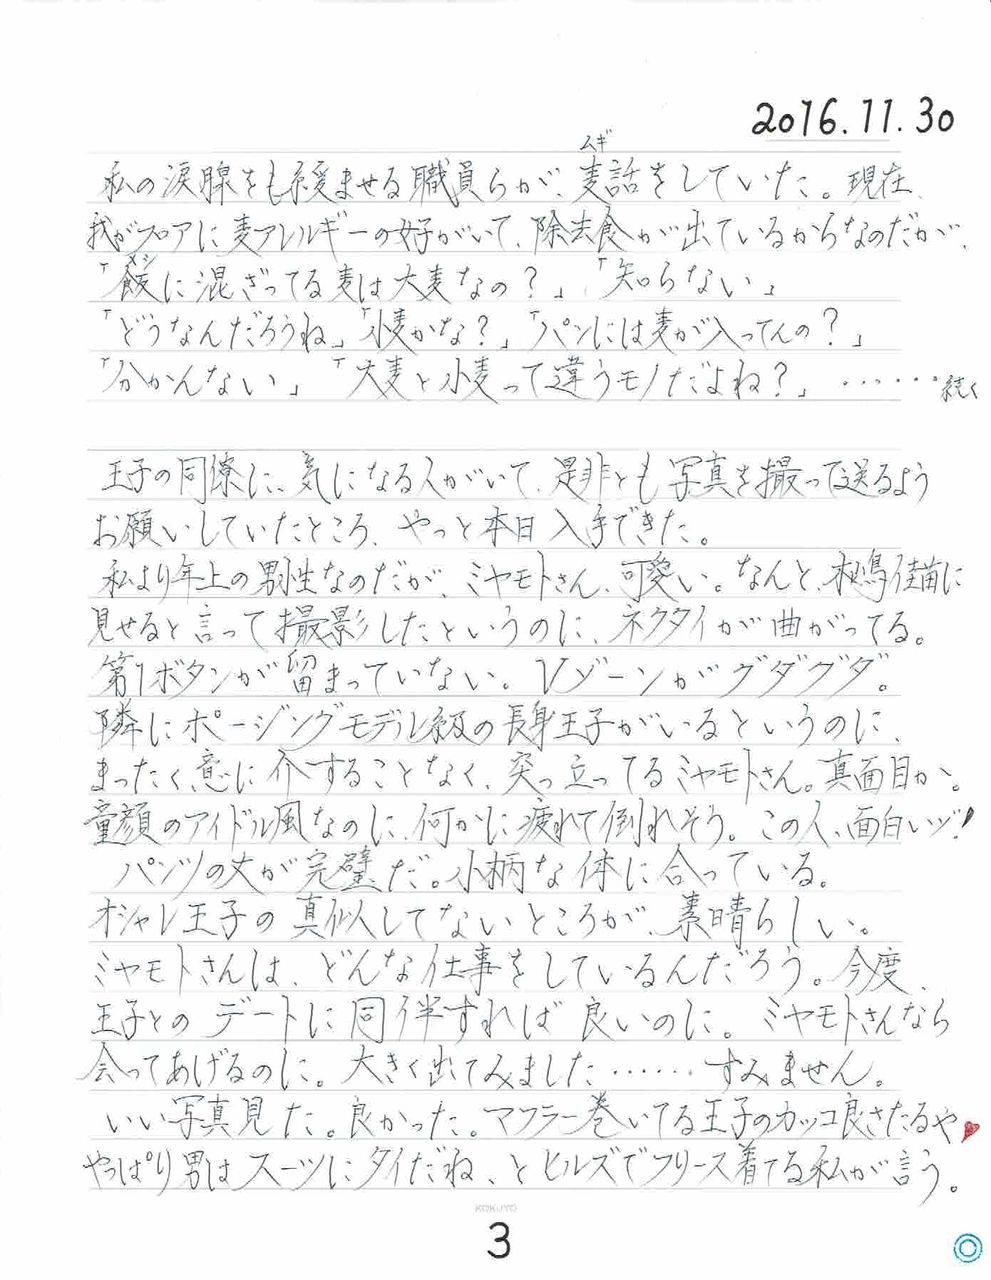 2016.11.30
ムギ
私の涙腺をも緩ませる職員らが、麦話をしていた。現在、
我がフロアに麦アレルギーの好子がいて、除去食が出ているからなのだが、
メシ
「飯に混ざってる麦は大麦なの?」「知らない」
「どうなんだろうね」「小麦かな?」「パンには麦が入ってんの?」
「分かんない」「大麦と小麦って違うモノだよね?」……続く
王子の同僚に、気になる人がいて、是非とも写真を撮って送るよう
お願いしていたところ、やっと本日入手できた。
私より年上の男性なのだが、ミヤモトさん、可愛い。なんと、木嶋佳苗に
見せると言って撮影したというのに、ネクタイが曲がってる。
第1ボタンが留まっていない。Vゾーンがグダグダ。
隣にポージングモデル級の長身王子がいるというのに、
まったく意に介することなく、突っ立ってるミヤモトさん。真面目か。
童顔のアイドル風なのに、何かに疲れて倒れそう。この人、面白いッ!
パンツの丈が完璧だ。小柄な体に合っている。
オシャレ王子の真似してないところが、素晴らしい。
ミヤモトさんは、どんな仕事をしているんだろう。今度、
王子とのデートに同伴すれば良いのに。ミヤモトさんなら
会ってあげるのに。大きく出てみました……すみません。
いい写真見た。良かった。マフラー巻いてる王子のカッコ良さたるや♥
やっぱり男はスーツにタイだね、とヒルズでフリース着てる私が言う。
KOKUYO
3